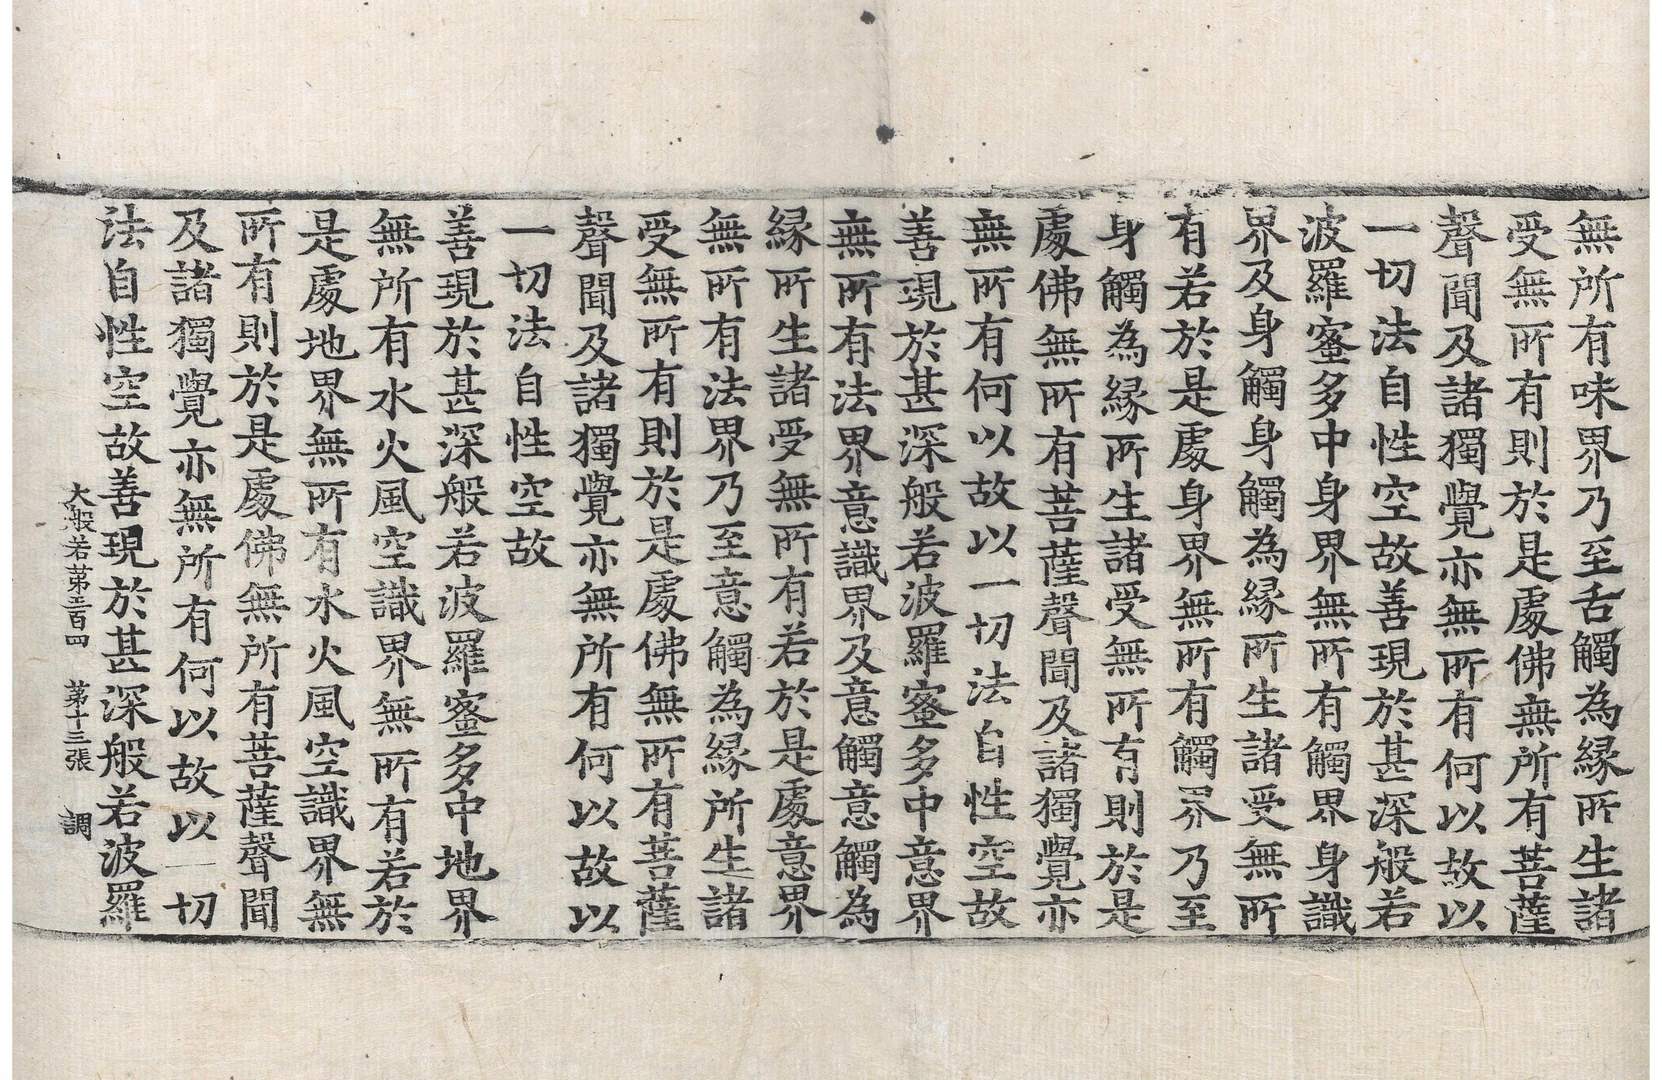 無所有味界乃至舌觸為縁所生諸
受無所有則於是處佛無所有菩薩
聲聞及諸獨覺亦無所有何以故以
一切法自性空故善現於甚深般若
波羅蜜多中身界無所有觸界身識
界及身觸身觸為縁所生諸受無所
有若於是處身界無所有觸界乃至
身觸為縁所生諸受無所有則於是
處佛無所有菩薩聲聞及諸獨覺亦
無所有何以故以一切法自性空故
善現於甚深般若波羅蜜多中意界
無所有法界意識界及意觸意觸為
縁所生諸受無所有若於是處意界
無所有法界乃至意觸為縁所生諸
受無所有則於是處佛無所有菩薩
聲聞及諸獨覺亦無所有何以故以
一切法自性空故
善現於甚深般若波羅蜜多中地界
無所有水火風空識界無所有若於
是處地界無所有水火風空識界無
所有則於是處佛無所有菩薩聲聞
及諸獨覺亦無所有何以故以一切
法自性空故善現於甚深般若波羅
大般若第三百四 第十三張 調